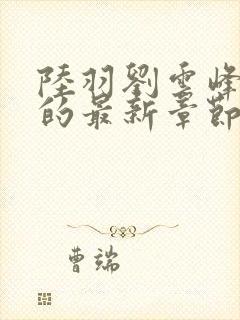 陸羽劉雲峰
的最新章節
曹端